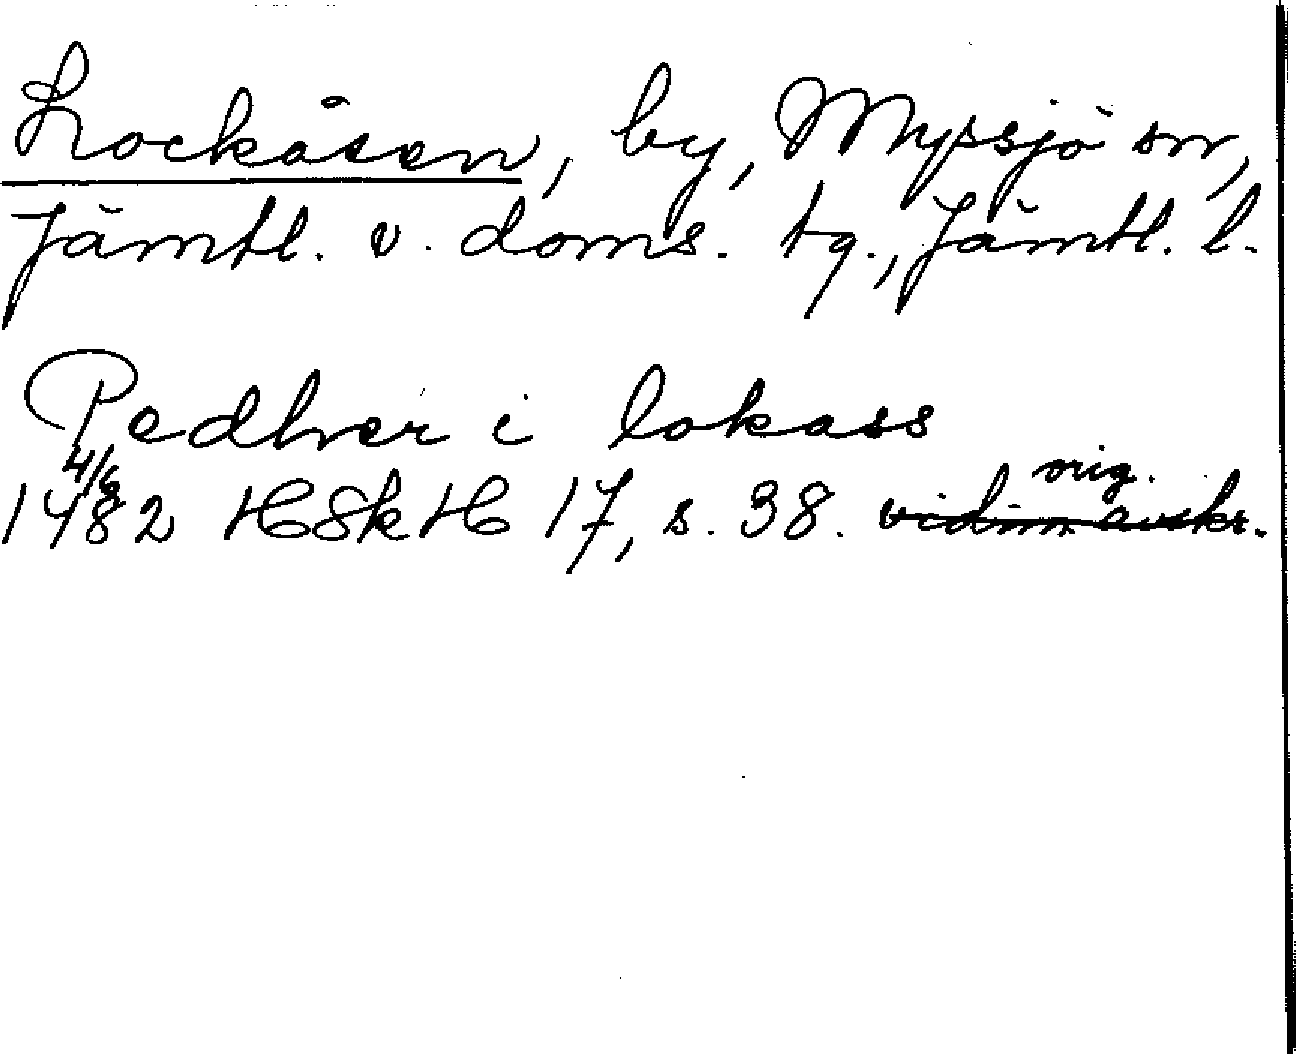 Lockåsen, by, Mypsjö sn,
Jämtl. v. doms. tg., Jämtl. l.
Pedher i lokass
4/6
1482 HSkH 17, s. 38. vidim. avskr. orig.